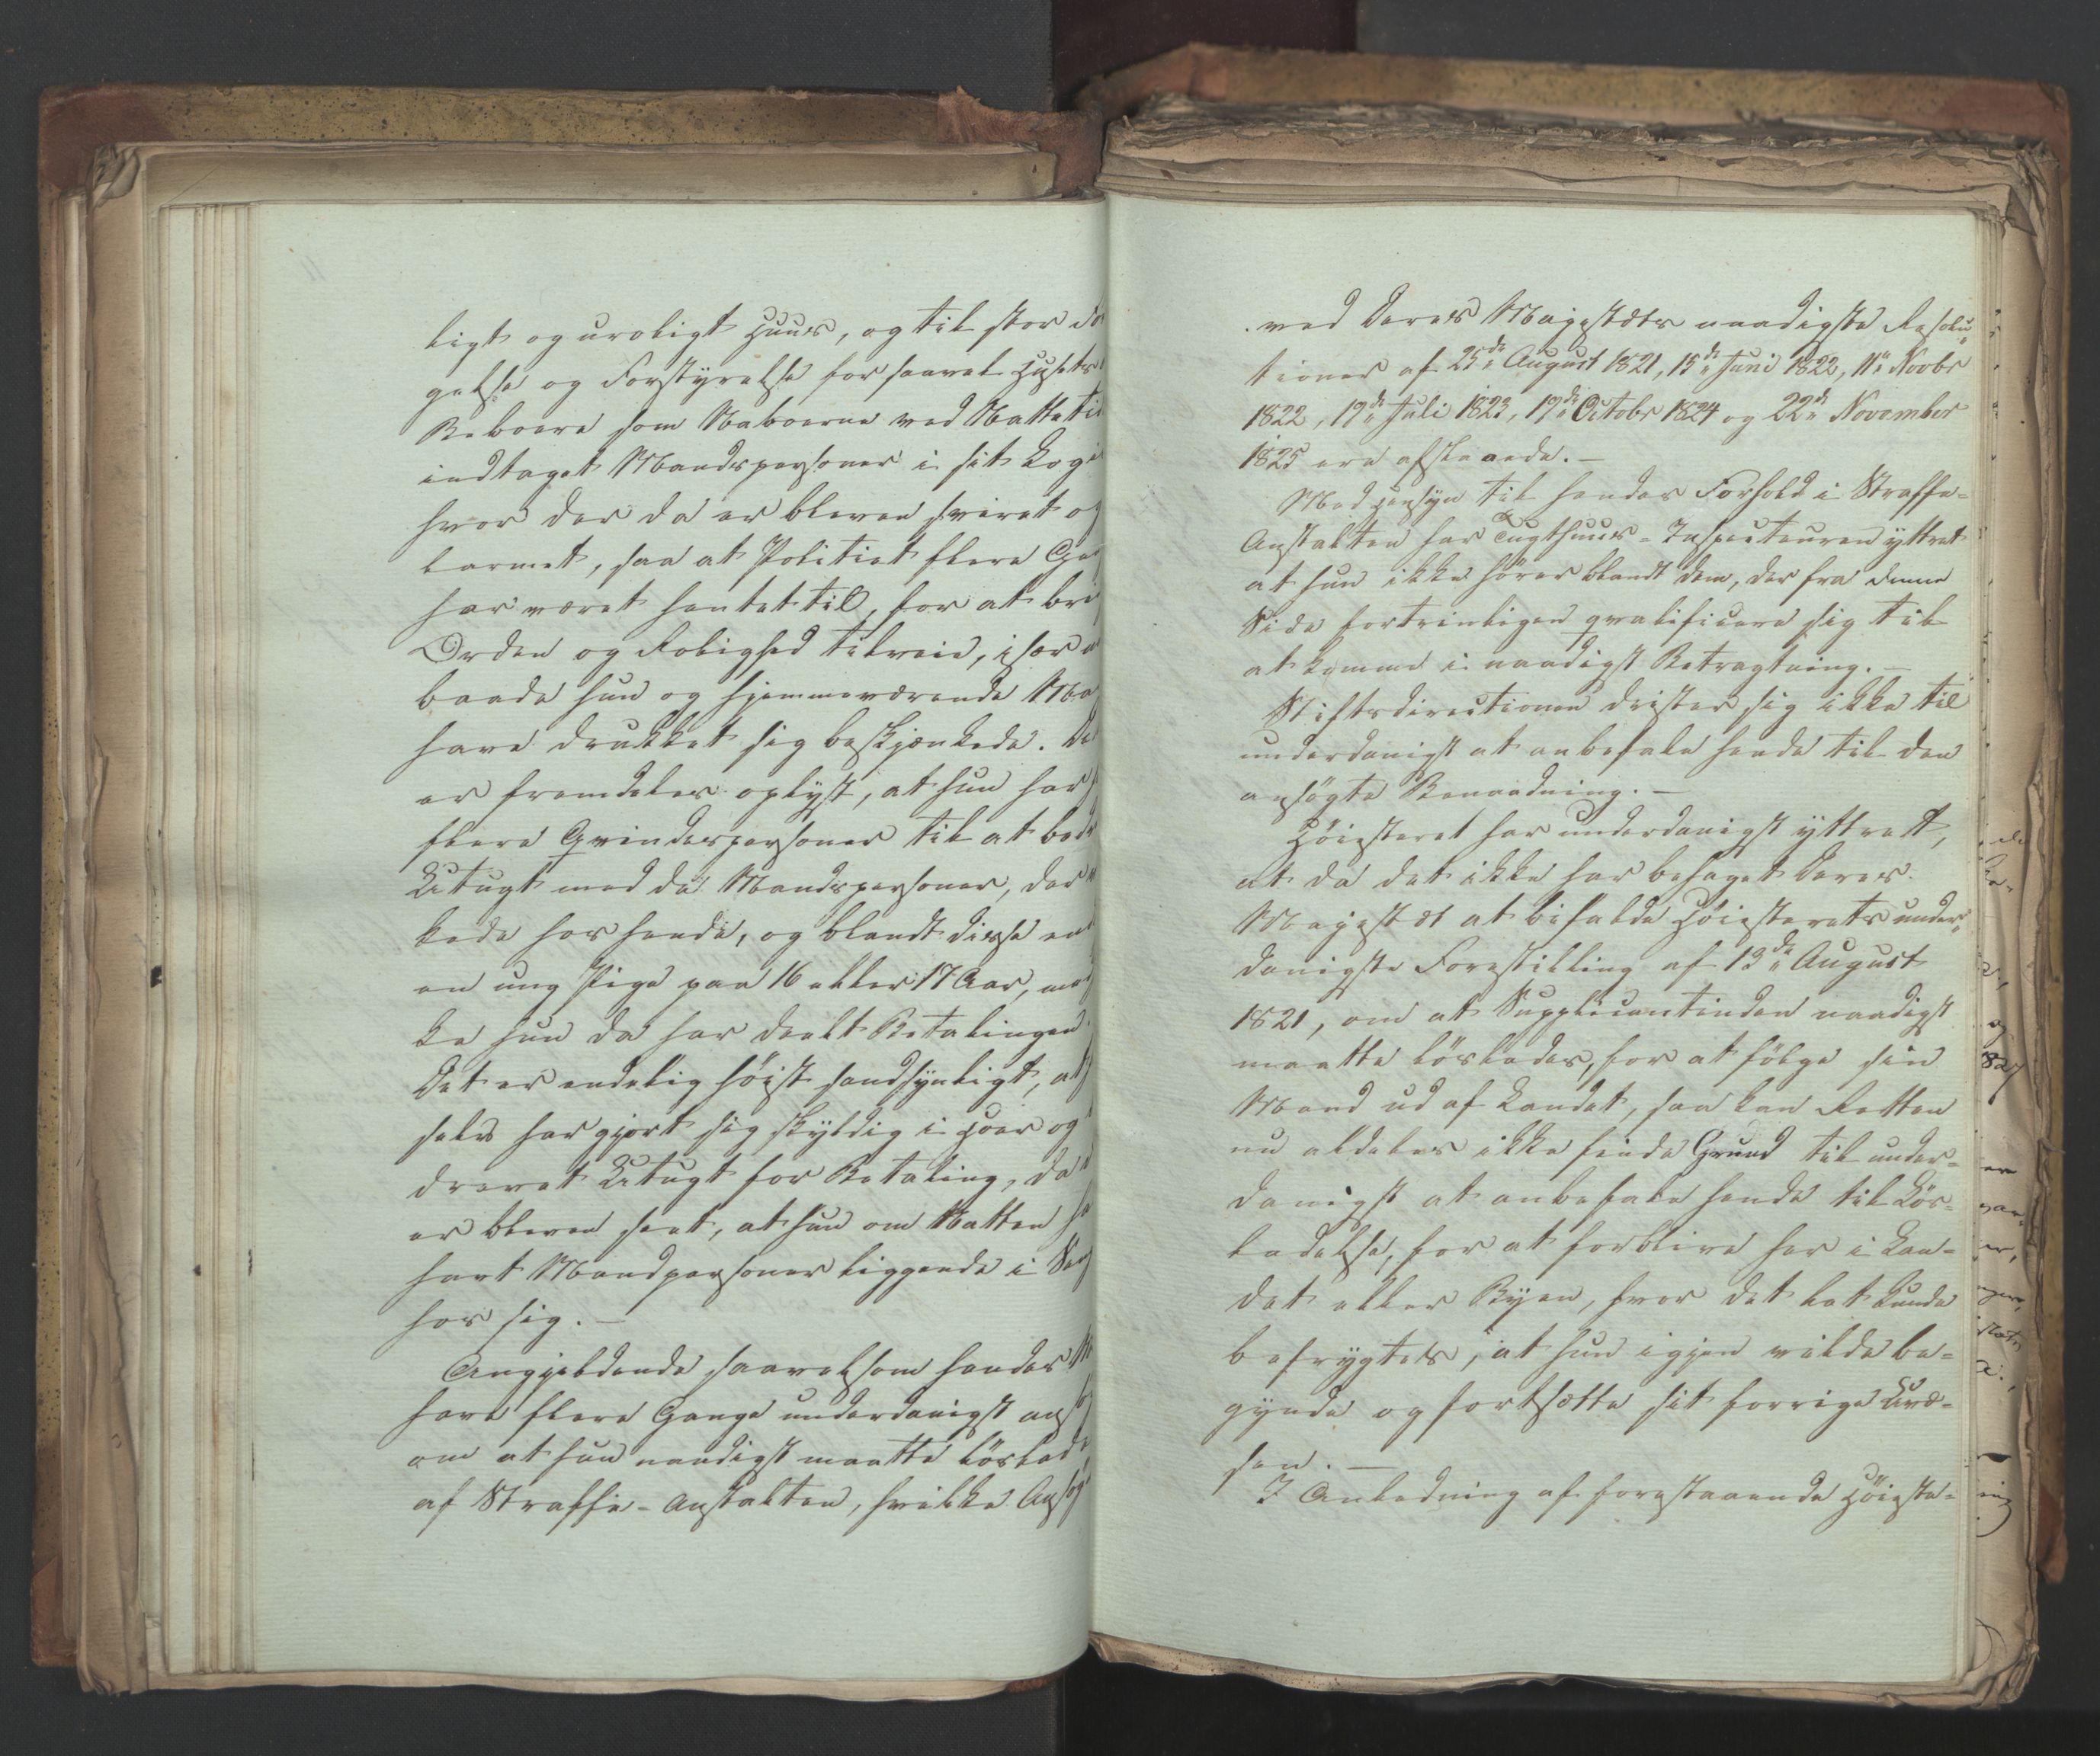 ligt og uroligt Huus, og til stor For
gelse og Forstyrelse for saavel Husets
Beboere som Naboerne ved Nattetid
indtaget Mandspersoner i sit Logi
hvor der da er bleven sviret og
larmet, saa at Politiet flere Gan
har været hentet til, for at bri
Orden og Rolighed tilveie, især
baade hun og hjemmeværende Ma
have drukket sig beskjænkede. Det
er fremdeles oplyst, at hun har
flere Qvindespersoner til at bedr
Utugt med de Mandspersoner, der
kede hos hende, og blandt disse end
en ung Pige paa 16 eller 17 Aar, med
ke hun da har deelt Betalingen.
Det er endelig høist sandsynligt, at
selv har gjort sig skyldig i Hoer og
drevet Utugt for Betaling, da
er bleven seet, at hun om Natten ha
havt Mandspersoner liggende i Sen
hos sig. —
Angjeldende saavelsom hendes
have flere Gange underdanigst ans
om at hun naadigst maatte løslad
af Straffe-Anstalten, hvilke Ansøg
ved Deres Majestæts naadigste Resolu
tioner af 25de August 1821, 15de Juni 1822, 11te Novbr
1822, 19de Juli 1823, 19de Octobr 1824 og 22de November
1825 ere afslaaede. —
Med Hensyn til hendes Forhold i Straffe-
Anstalten har Tugthuus-Inspecteuren yttret
at hun ikke hører blandt dem, der fra denne
Side fortrinligen qvalificere sig til
at komme i naadigst Betragtning. —
Stiftsdirectionen drister sig ikke til
underdanigst at anbefale hende til den
ansøgte Benaadning. —
Høiesteret har underdanigst yttret,
at da det ikke har behaget Deres
Majestæt at bifalde Høiesterets under
danigste Forestilling af 13de August
1821, om at Supplicantinden naadigst
maatte løslades, for at følge sin
Mand ud af Landet, saa kan Retten
nu aldeles ikke finde Grund til under-
danigst at anbefale hende til Løs-
ladelse, for at forblive her i Lan-
det eller Byen, hvor det let kunde
befrygtes, at hun igjen vilde be-
gynde og fortsætte sit forrige Uvæ-
sen. —
I Anledning af forestaaende Høieste-